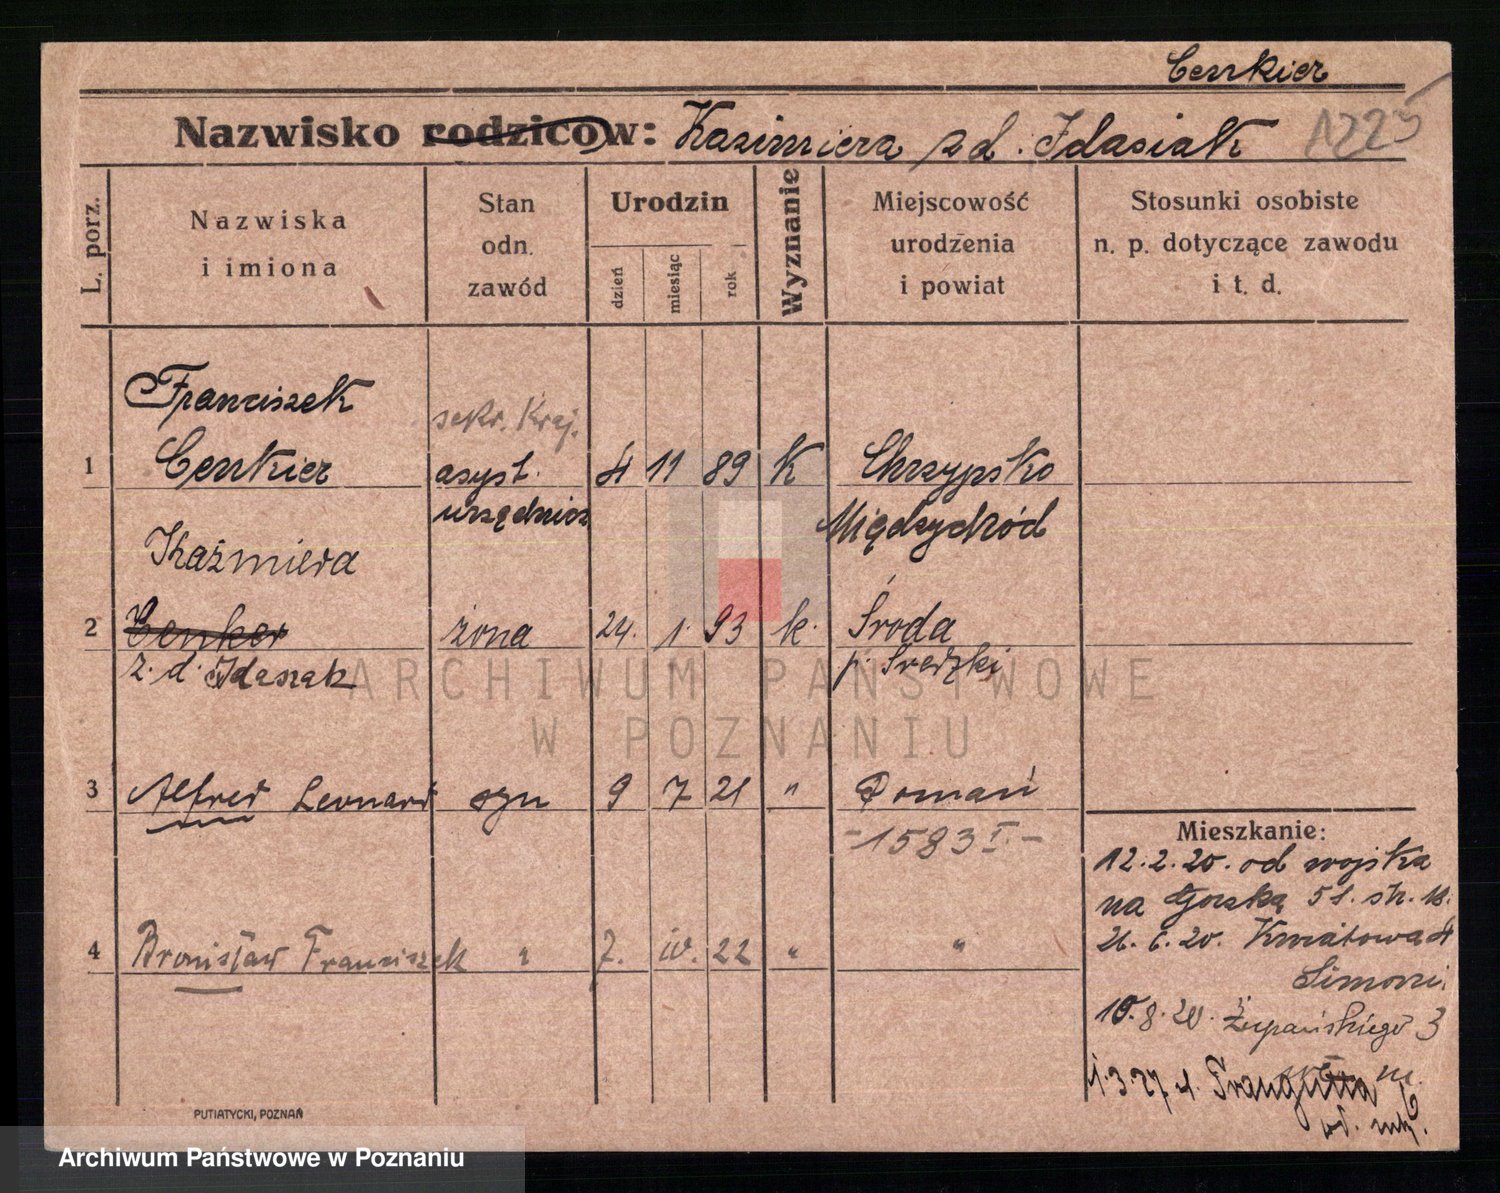 Cenkier
Nazwisko rodziców: Kazimiera z d. Idasiak 1225
L. porz.
Nazwiska
i imiona
Stan
odn.
zawód
Urodzin
dzień
miesiąc
rok
Wyznanie
Miejscowość
urodzenia
i powiat
Stosunki osobiste
n. p. dotyczące zawodu
i t. d.
Franciszek
sekr. Kraj.
1 Cenkier asyst. 4 11 89 K Chrzypsko
Międzychód
Kaźmiera
2 Cenker żona 24. 1. 93 k. Środa
z. d. Idaszak p. Średzki
3 Alfred Leonard syn 9 7 21 " Poznań
-1583 I.-
4 Bronisław Franciszek " 7. IV. 22 " "
Mieszkanie:
12.2.20. od wojska
na Górską 5 I. st.
21.6.20. Kwiatowa 4
Simon
10.8.20. Żupańskiego 3
1.3.27 Traugutta
PUTIATYCKI, POZNAŃ
ARCHIWUM PAŃSTWOWE
W POZNANIU
Archiwum Państwowe w Poznaniu